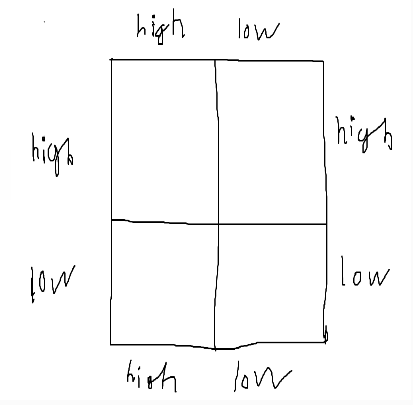 high low
high high
low low
high low